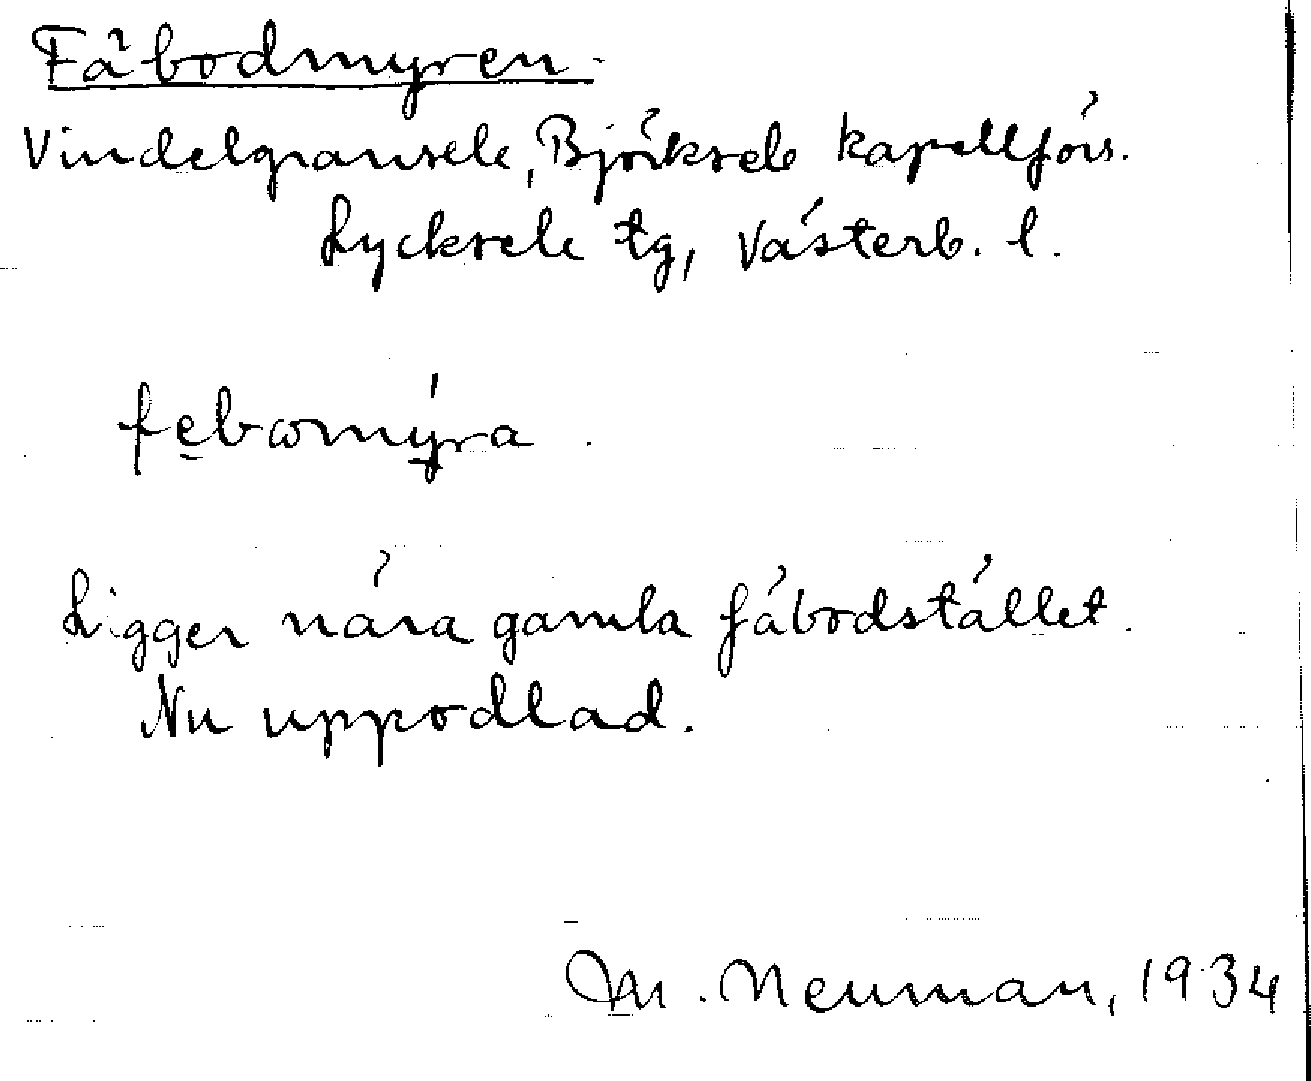 Fäbodmyren.
Vindelgransele, Björksele kapellförs.
Lycksele tg, Västerb. l.
febωmýra.
Ligger nära gamla fäbodstället.
Nu uppodlad.
M. Neuman, 1934